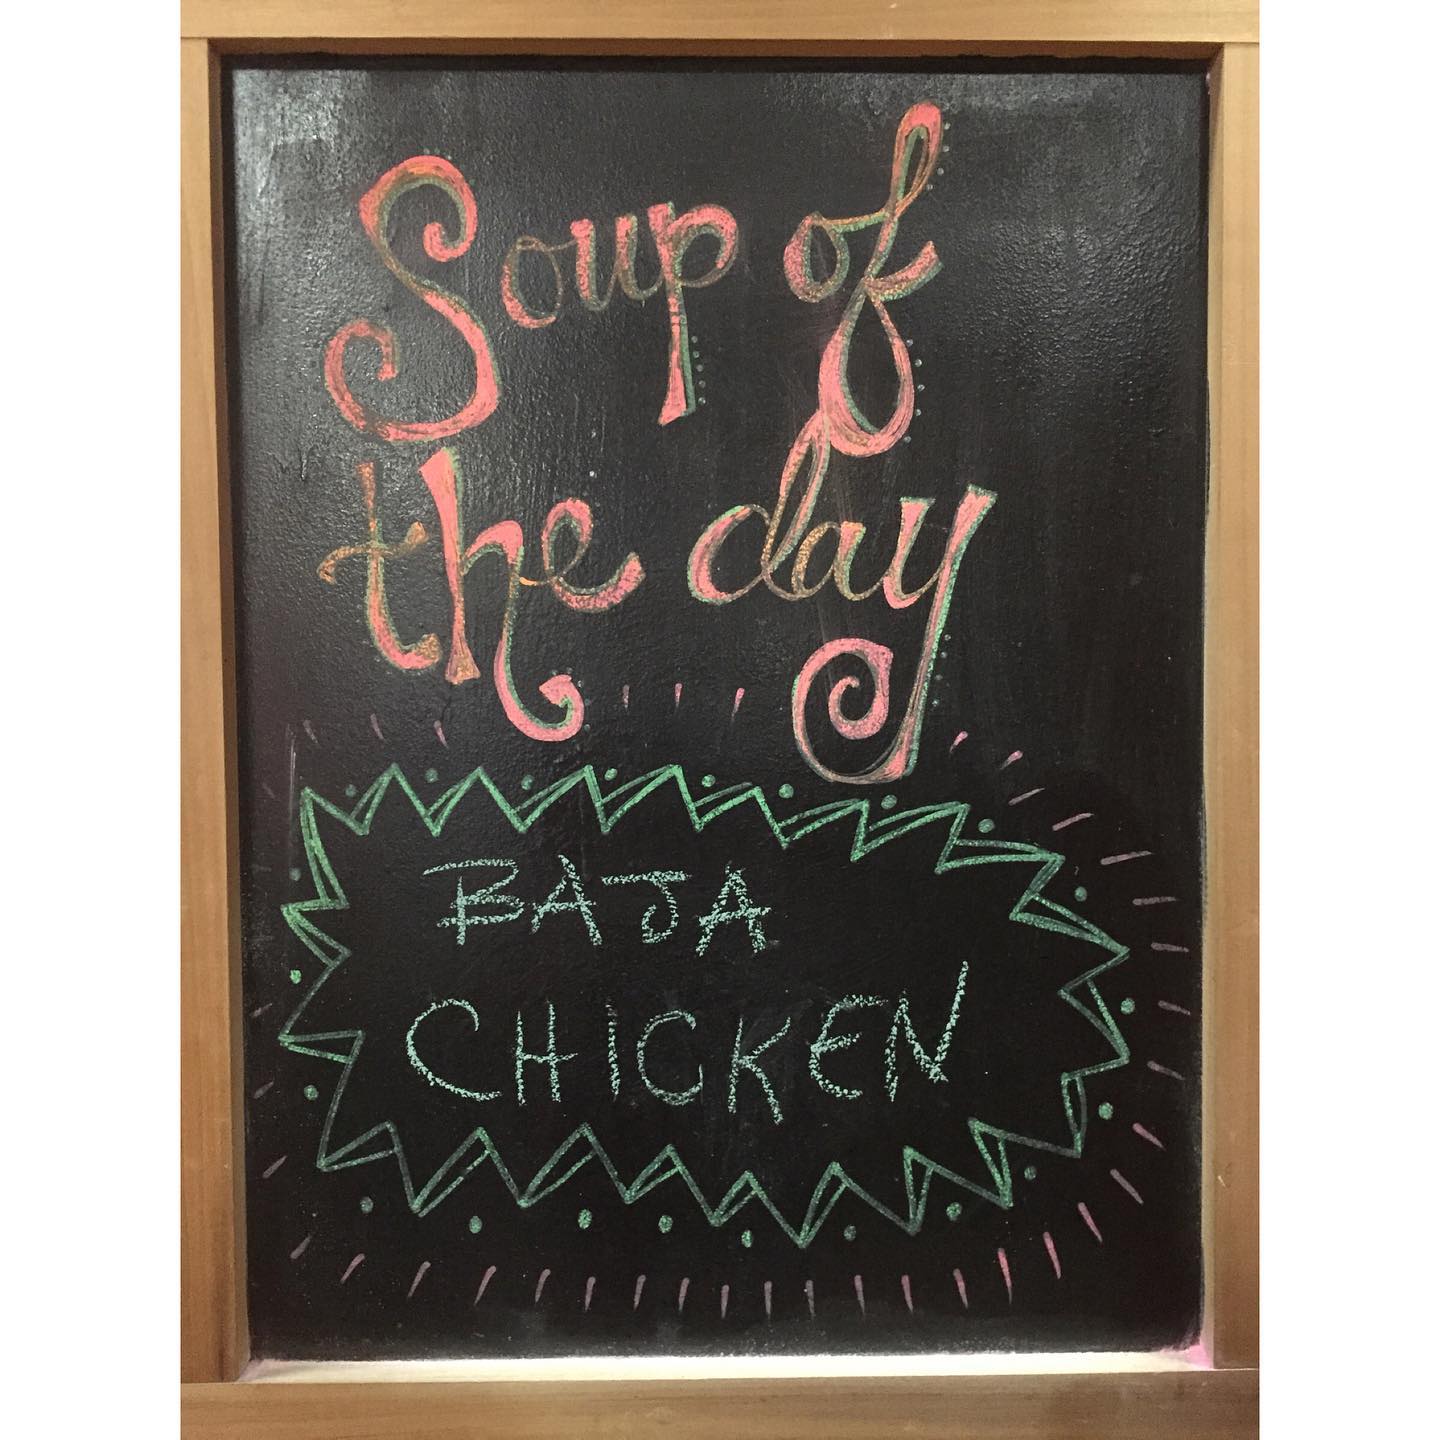 Soup of
the day
BAJA
CHICKEN